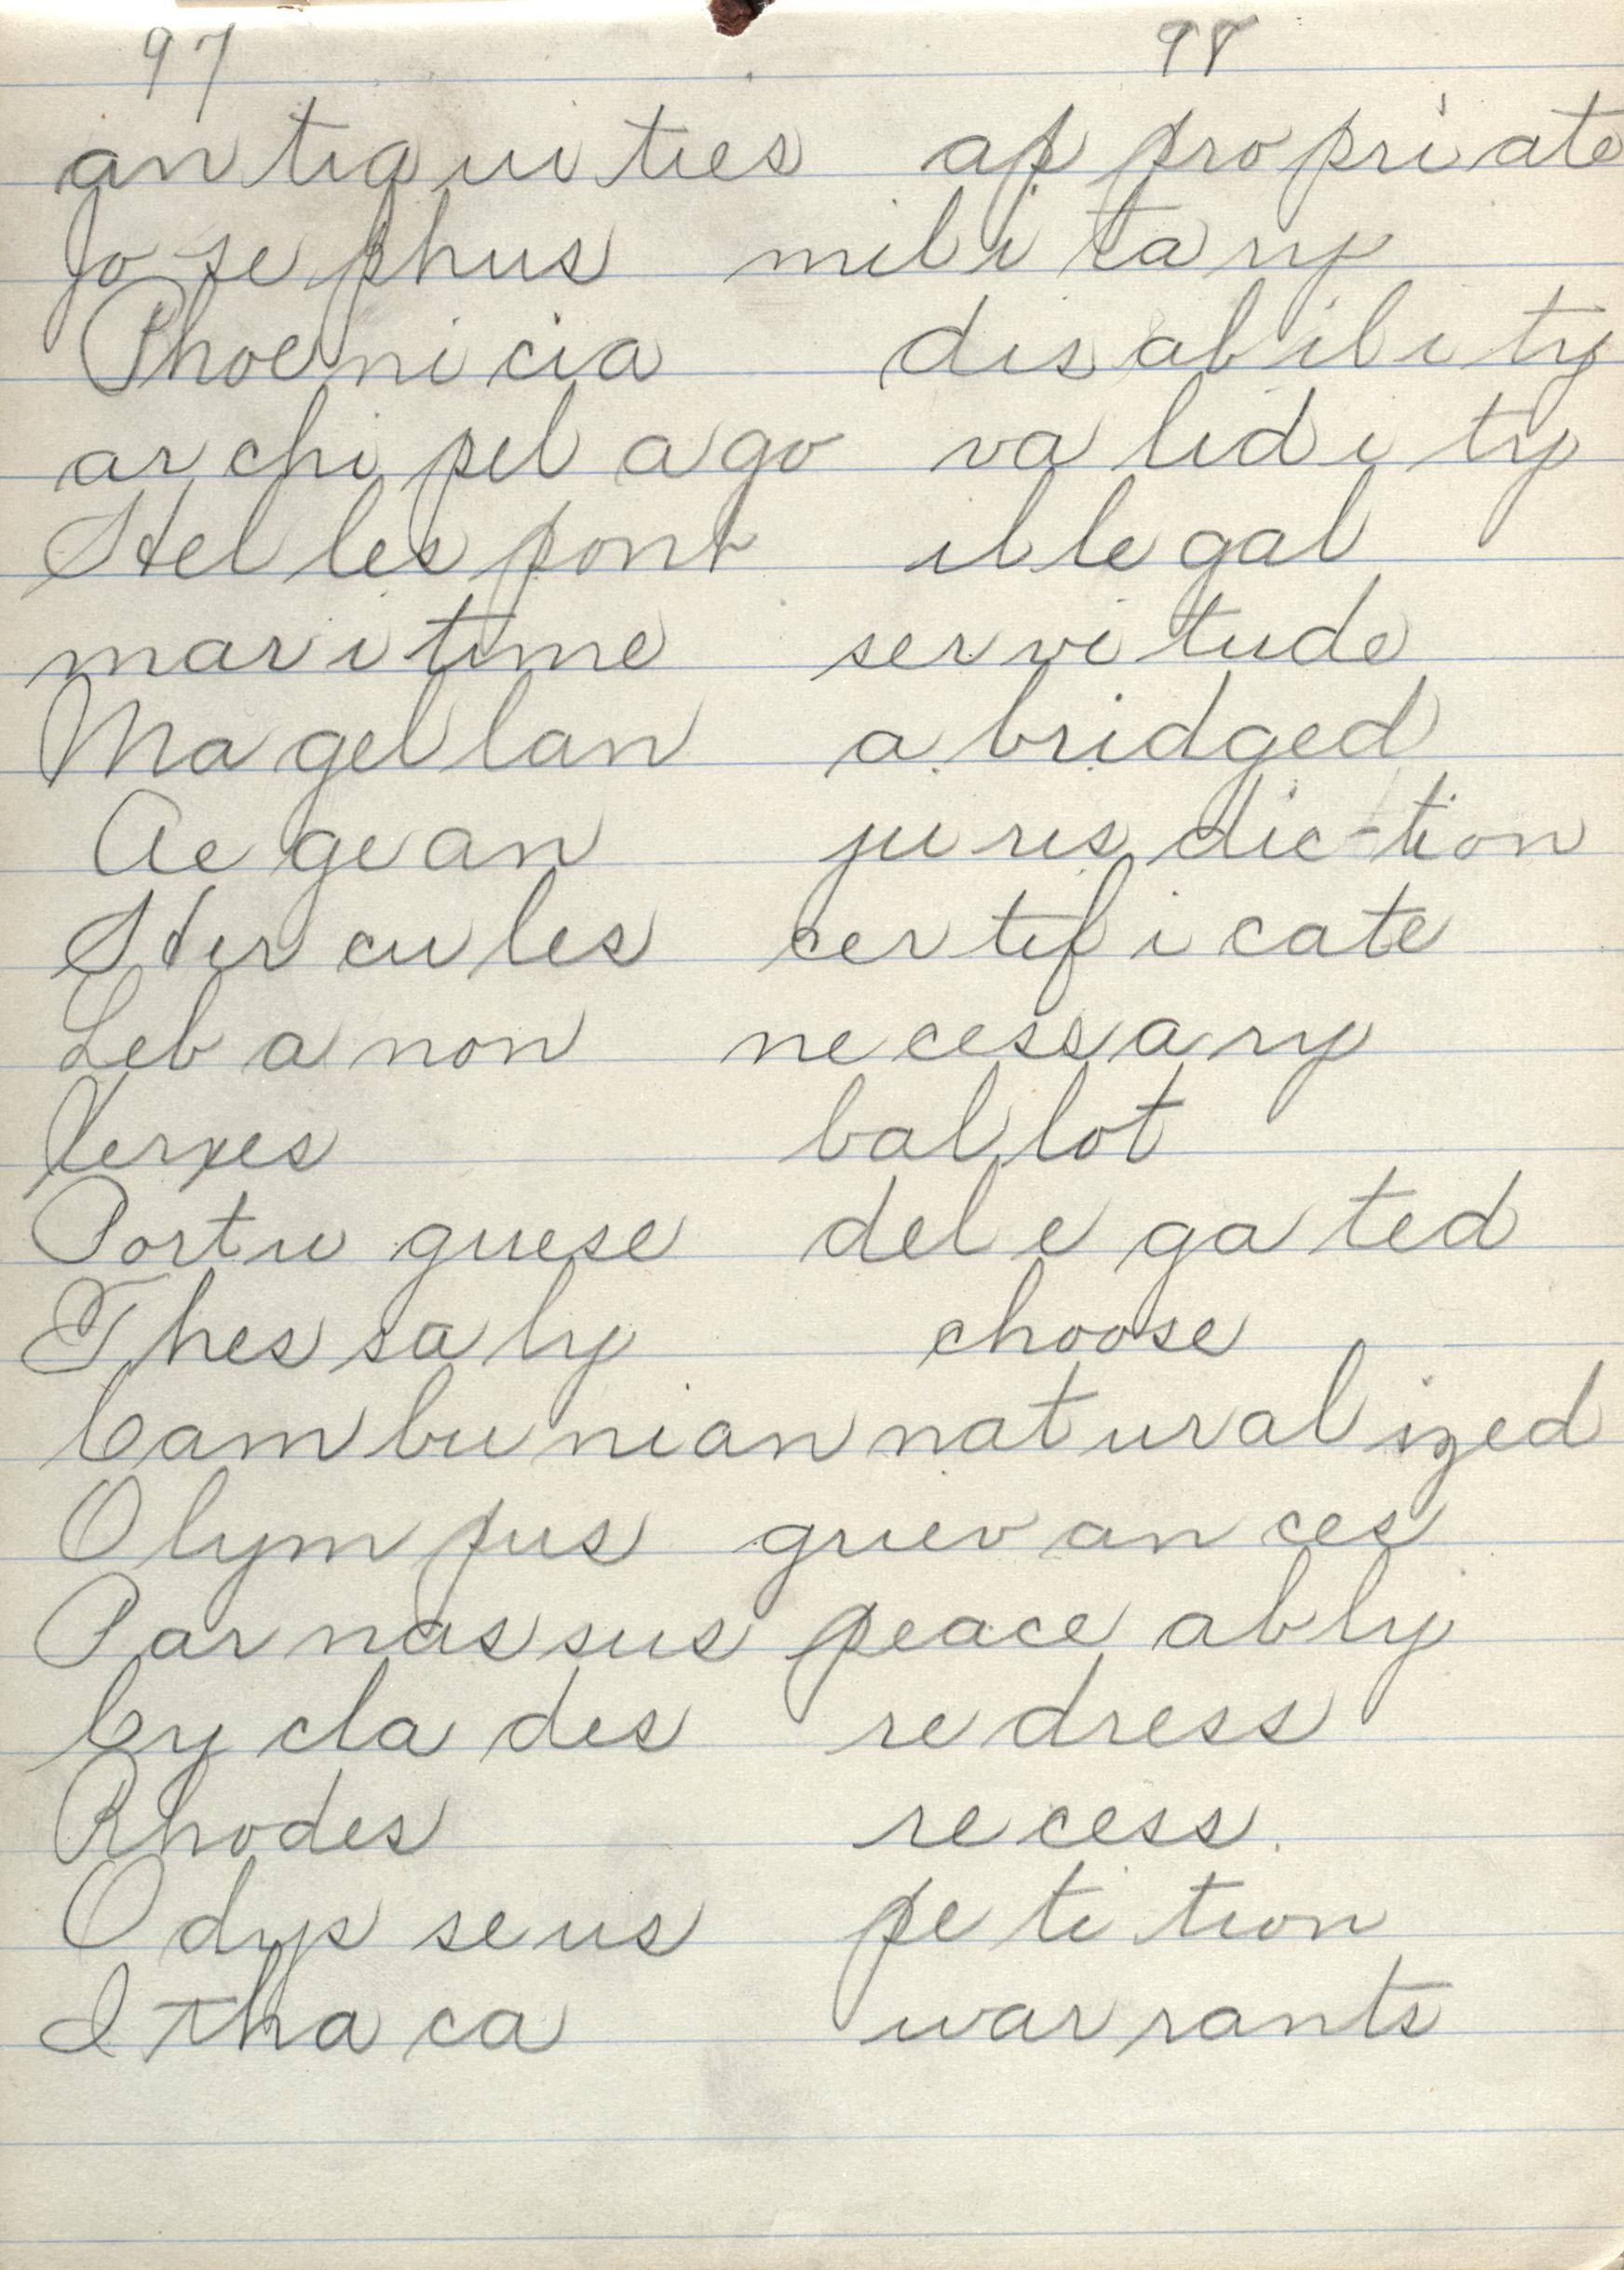 97 98
an tiq ui ties ap pro pri ate
Jo se phus mil i ta ry
Phoe ni cia dis a bil i ty
ar chi pel a go va lid i ty
Hel les pont il le gal
mar i time ser vi tude
Ma gel lan a bridged
Ae ge an ju ris dic-tion
Her cu les cer tif i cate
Leb a non ne cess a ry
Xerxes bal lot
Por tu guese del e ga ted
Thes sa ly choose
Cam bu nian nat ur al ized
Olym pus griev an ces
Par nas sus peace ab ly
Cy cla des re dress
Rhodes re cess.
Odys se us pe ti tion
I tha ca war rants